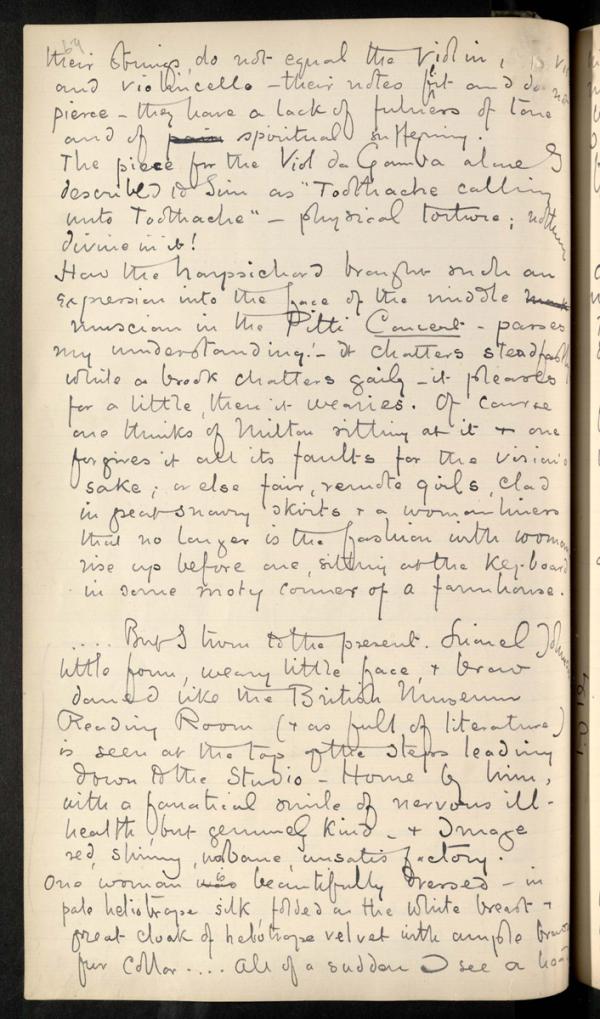 64
their strings, do not equal the Violin,
and violincello – their notes fit and do not
pierce – they have a lack of fulness of tone
and of pain spiritual suffering.
The piece for the Viol da Gamba alone I
described to Sim as "Toothache calling
unto Toothache" – physical torture; nothing
divine in it!
How the harpsichord brought such an
expression into the face of the middle
muscian in the Pitti Concert – passes
my understanding! – It chatters steadfastly
while a brook chatters gaily – it pleases
for a little, then it wearies. Of course
one thinks of Milton sitting at it & one
forgives it all its faults for the vision's
sake; or else fair, remote girls, clad
in great snowy skirts & a womanliness
that no longer is the fashion with woman
rise up before one, sitting at the Key-board
in some corner of a farmhouse.
.... But I turn to the present. Lionel Johnson
little form, weary little face, & brow
domed like the British Museum
Reading Room (& as full of literature)
is seen at the top of the steps leading
down to the Studio – Horne by him,
with a fanatical smile of nervous ill-
health, but genuinely kind – & Image
red, shiny, urbane, unsatisfactory.
One woman was is beautifully dressed – in
pale heliotrope silk, folded on the white breast &
great cloak of heliotrope velvet with ample brown
fur collar .... All of a sudden I see a head